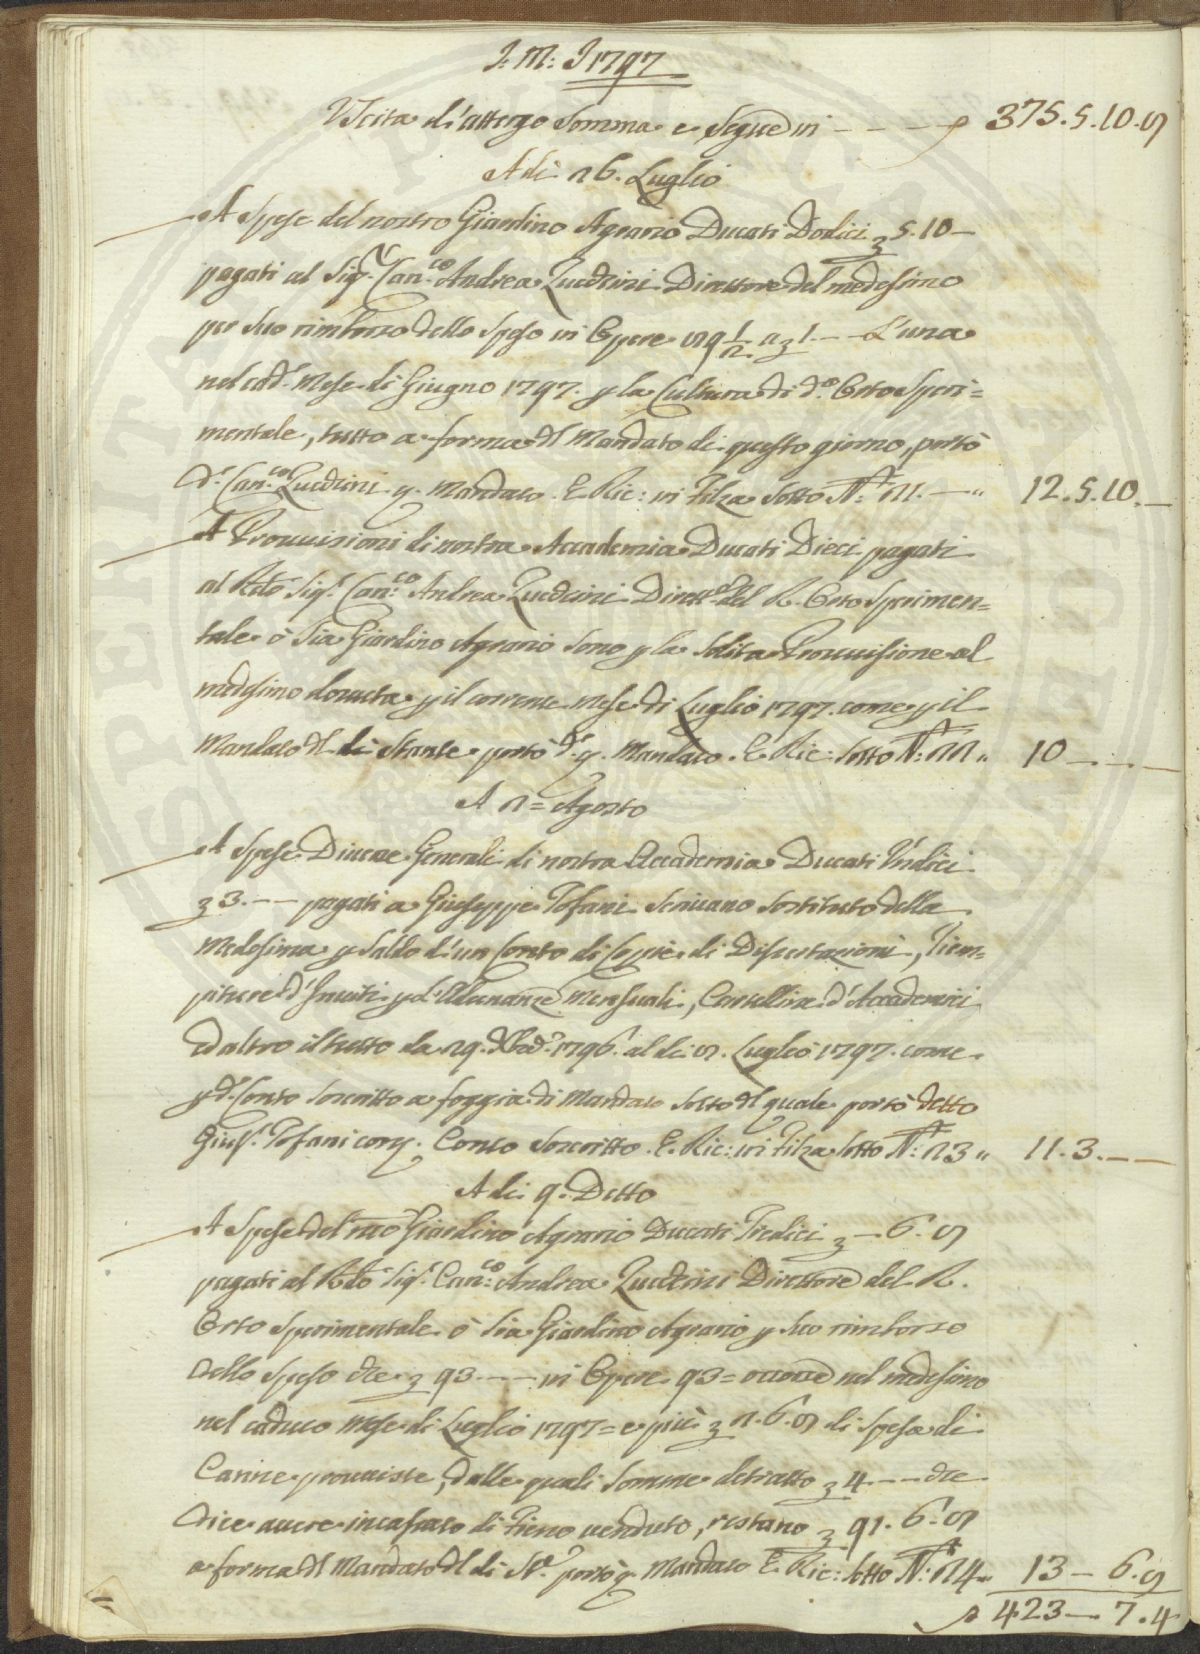 J: M: J 1797
Uscita d'attergo Somma e Segue in - - - - 375.5.10.8
A dì 26. Luglio
A Spese del nostro Giardino Agrario Ducati Dodici 5.10 -
pagati al Sig.r Can.co Andrea Zucchini Direttore del medesimo
per suo rimborso dello speso in Opere 89 1/2 a 1. - - L'una
nel cad.o Mese di Giugno 1797. p la Cultura di d.o Orto Speri=
mentale, tutto a forma d'l Mandato di questo giorno, portò
d.o Can.co Zucchini q. Mandato. E. Ric: in Filza Sotto N.o 21. - " 12.5.10. -
A Provvisioni di nostra Accademia Ducati Dieci pagati
al Rdo Sig.r Can.co Andrea Zucchini Dirett.e del R. Orto Sperimen=
tale ò sia Giardino Agrario sono p la solita Provvisione al
medesimo dovuta p il corrente mese di Luglio 1797. come p il
Mandato d'l dì Stante portò d.o q. Mandato. E. Ric: sotto N.o 22 " 10 - . - . -
A 2 = Agosto
A Spese Diverse Generali di nostra Accademia Ducati Undici
3. - - pagati a Giuseppe Tofani Scrivano Sostituto della
Medesima p Saldo d'un Conto di Copie di Dissertazioni, Riem=
piture d'Inviti p L'Adunanze Mensuali, Cartelline d'Accademici
ed altro il tutto da 29. 1796. al dì 8. Luglio 1797. come
p d.o Conto soscritto a foggia di Mandato sotto d'l quale portò detto
Gius.e Tofani cont. Conto Soscritto. E. Ric: in Filza sotto N.o 23 " 11.3. - -
A dì 9. Detto
A Spese del nro Giardino Agrario Ducati Tredici - 6.8
pagati al Rdo Sig.r Can.co Andrea Zucchini Direttore del R.
Orto Sperimentale ò sia Giardino Agrario p suo rimborso
dello speso 93 - - - in Opere 93 = occorse nel medesimo
nel caduco mese di Luglio 1797 = e più 2.6.8 di spesa di
Canne provviste, dalle quali somme detratto 4 - - che
dice avere incassato di Fieno venduto, restano 91.6.8
a forma d'l Mandato d'l dì portò q. Mandato E. Ric: sotto N.o 24 " 13 - 6.8
423 - 7.4